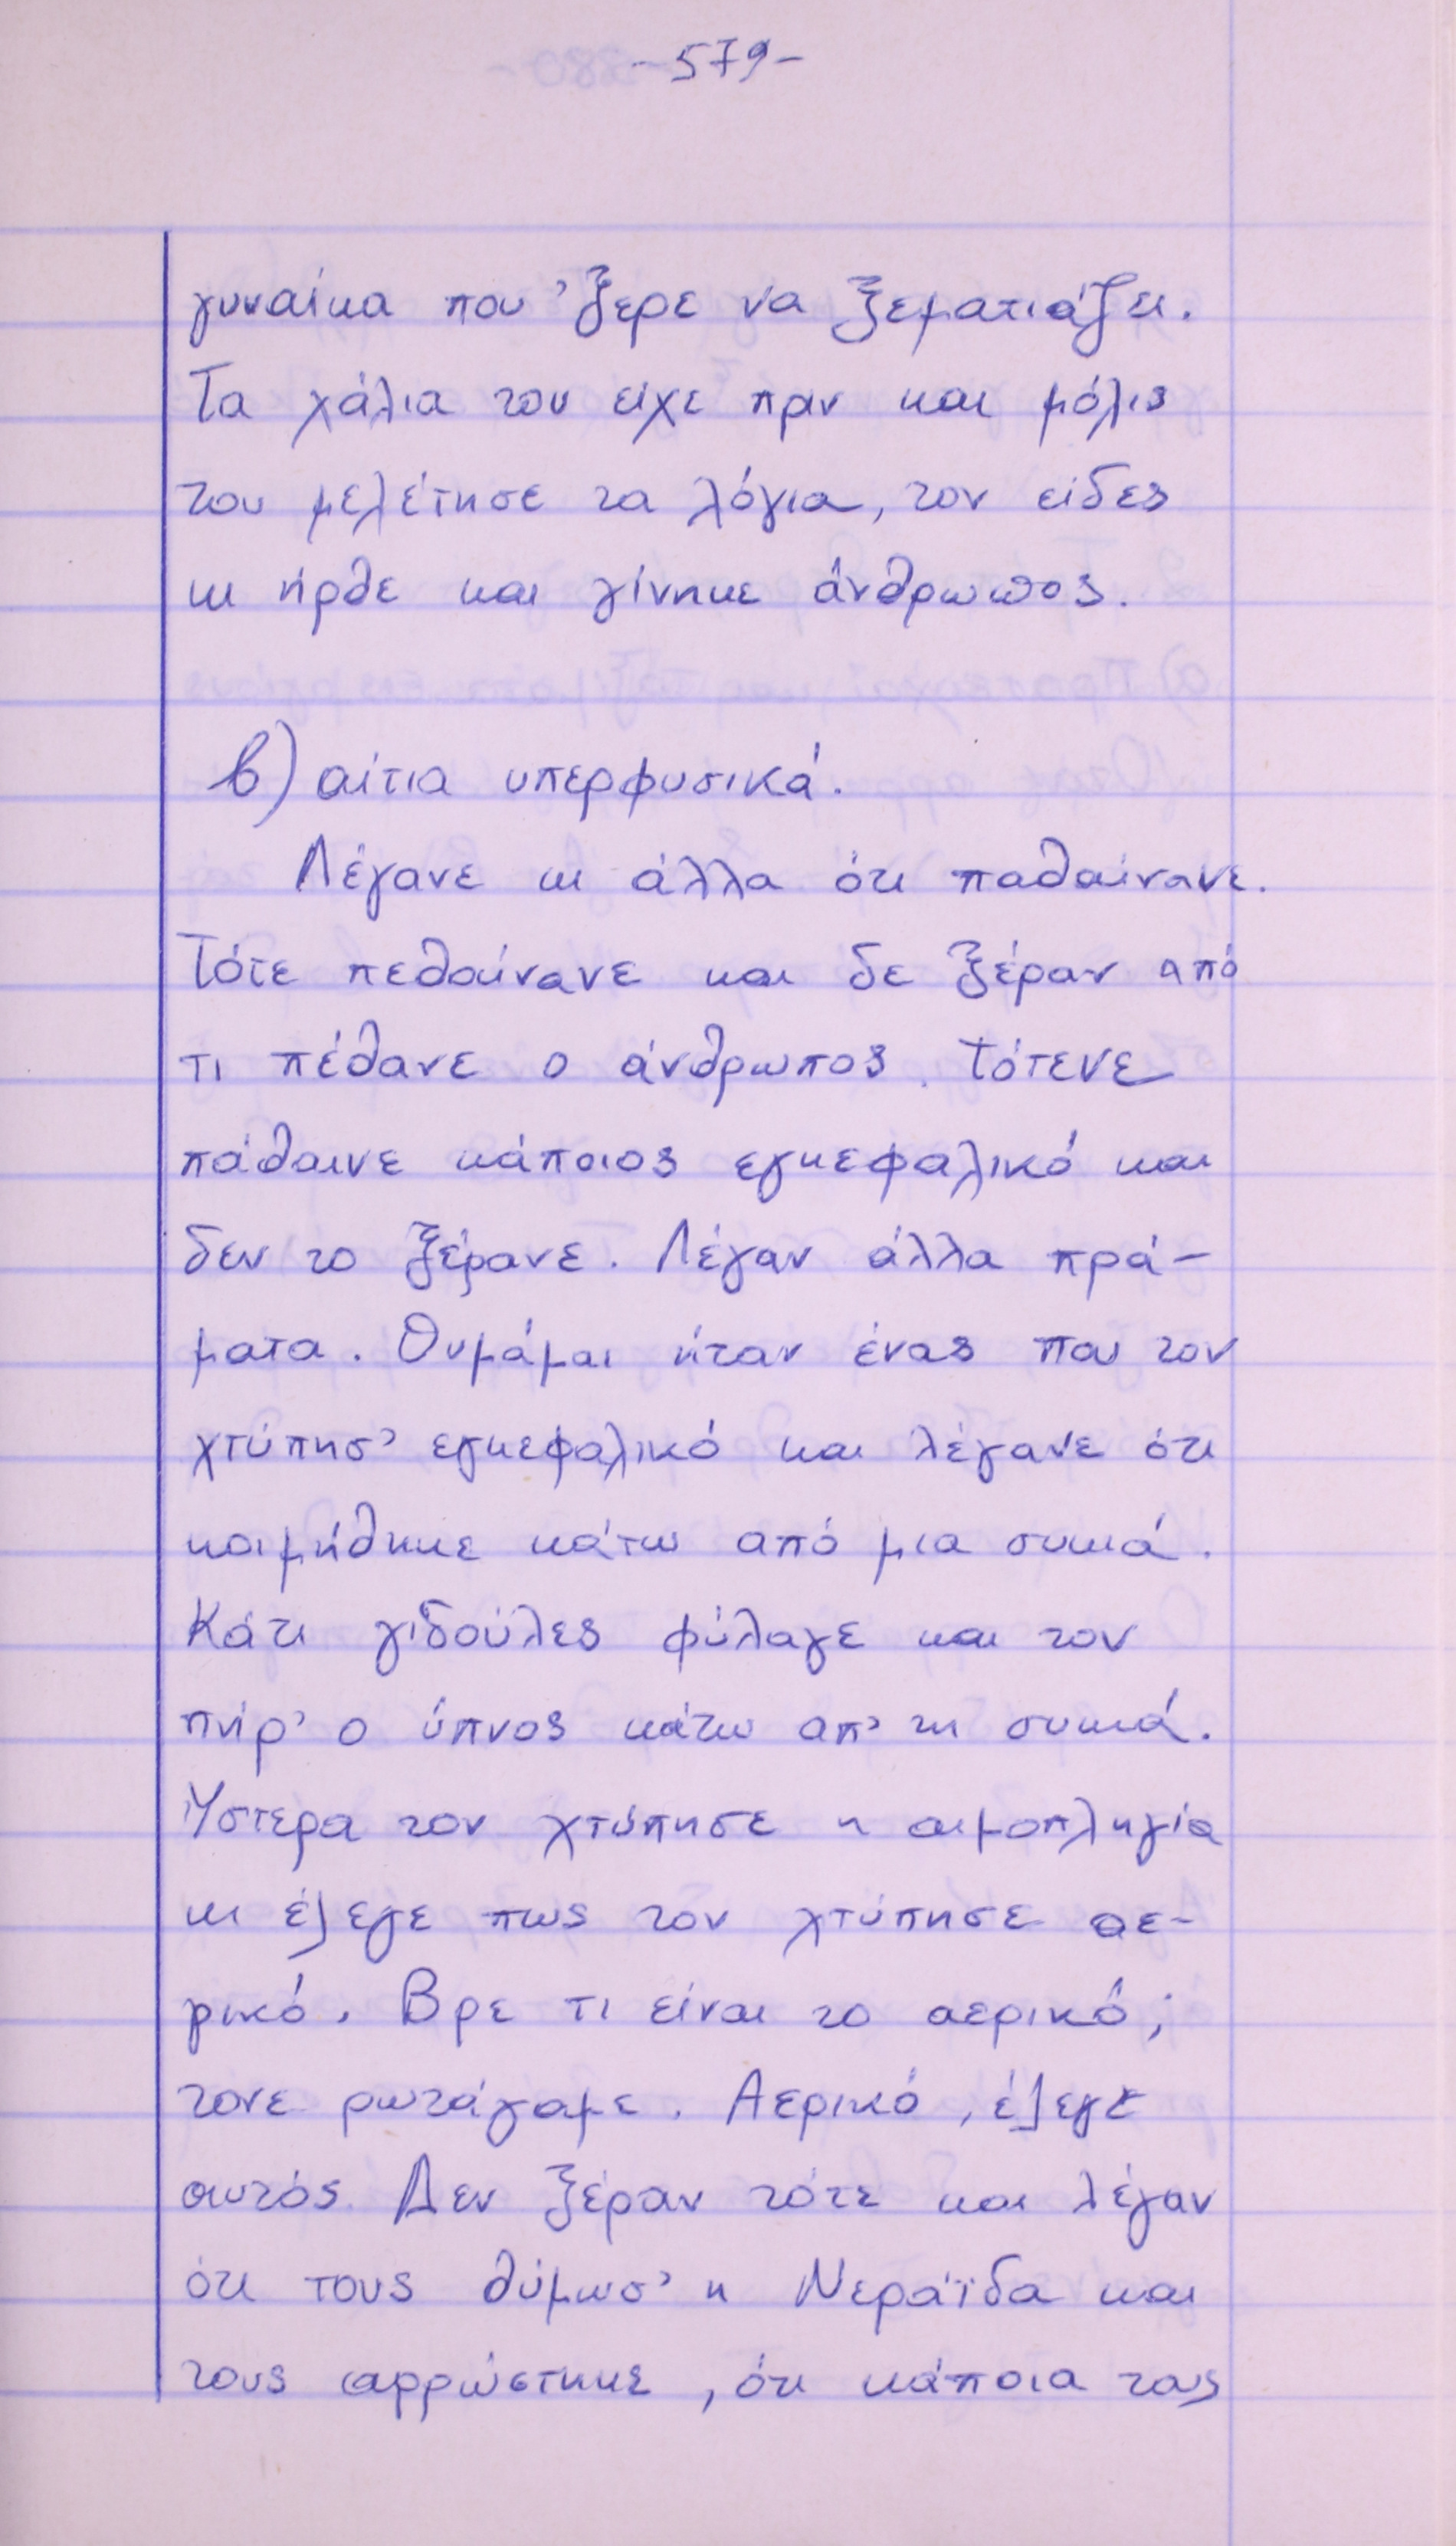 -579-
γυναίκα που 'ξερε να ξεματιάζει.
Τα χάλια του είχε πριν και μόλις
του μελέτησε τα λόγια, τον είδες
κι ήρθε και γίνηκε άνθρωπος.
β) αίτια υπερφυσικά.
Λέγανε κι άλλα ότι παθαίνανε.
Τότε πεθαίνανε και δε ξέραν από
τι πέθανε ο άνθρωπος. Τότενε
πάθαινε κάποιος εγκεφαλικό και
δεν το ξέρανε. Λέγαν άλλα πρά-
ματα. Θυμάμαι ήταν ένας που τον
χτύπησ' εγκεφαλικό και λέγανε ότι
κοιμήθηκε κάτω από μια συκιά.
Κάτι γιδούλες φύλαγε και τον
πήρ' ο ύπνος κάτω απ' τη συκιά.
Ύστερα τον χτύπησε η αιμοπληγία
κι έλεγε πως τον χτύπησε αε-
ρικό. Βρε τι είναι το αερικό;
τονε ρωτάγαμε. Αερικό, έλεγε
αυτός. Δεν ξέραν τότε και λέγαν
ότι τους θύμωσ' η Νεράϊδα και
τους αρρώστηκε, ότι κάποια τους